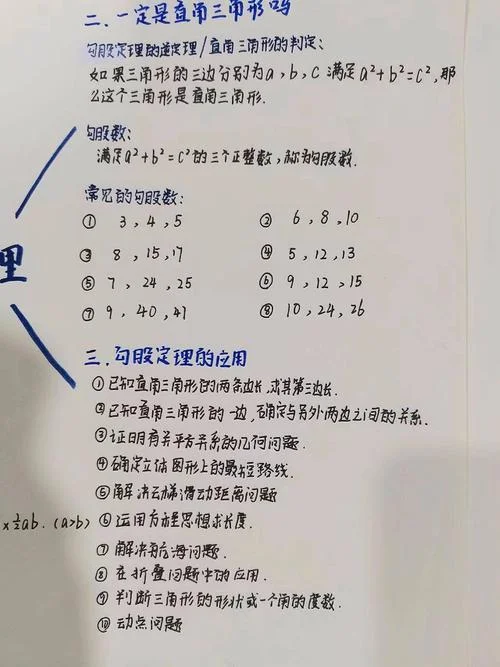 二、一定是直角三角形吗
勾股定理的逆定理/直角三角形的判定:
如果三角形的三边分别为a,b,c 满足a²+b²=c²,那
么这个三角形是直角三角形.
勾股数:
满足a²+b²=c²的三个正整数,称为勾股数.
常见的勾股数:
① 3,4,5 ② 6,8,10
③ 8,15,17 ④ 5,12,13
⑤ 7,24,25 ⑥ 9,12,15
⑦ 9,40,41 ⑧ 10,24,26
理
三.勾股定理的应用
①已知直角三角形的两条边长,求其第三边长.
②已知直角三角形的一边,确定与另外两边之间的关系.
③证明有关平方关系的几何问题.
④确定立体图形上的最短路线.
⑤解决云梯滑动距离问题
×½ab.(a>b)
⑥运用方程思想求长度.
⑦解决航海问题.
⑧在折叠问题中的应用.
⑨判断三角形的形状或一个角的度数.
⑩动点问题